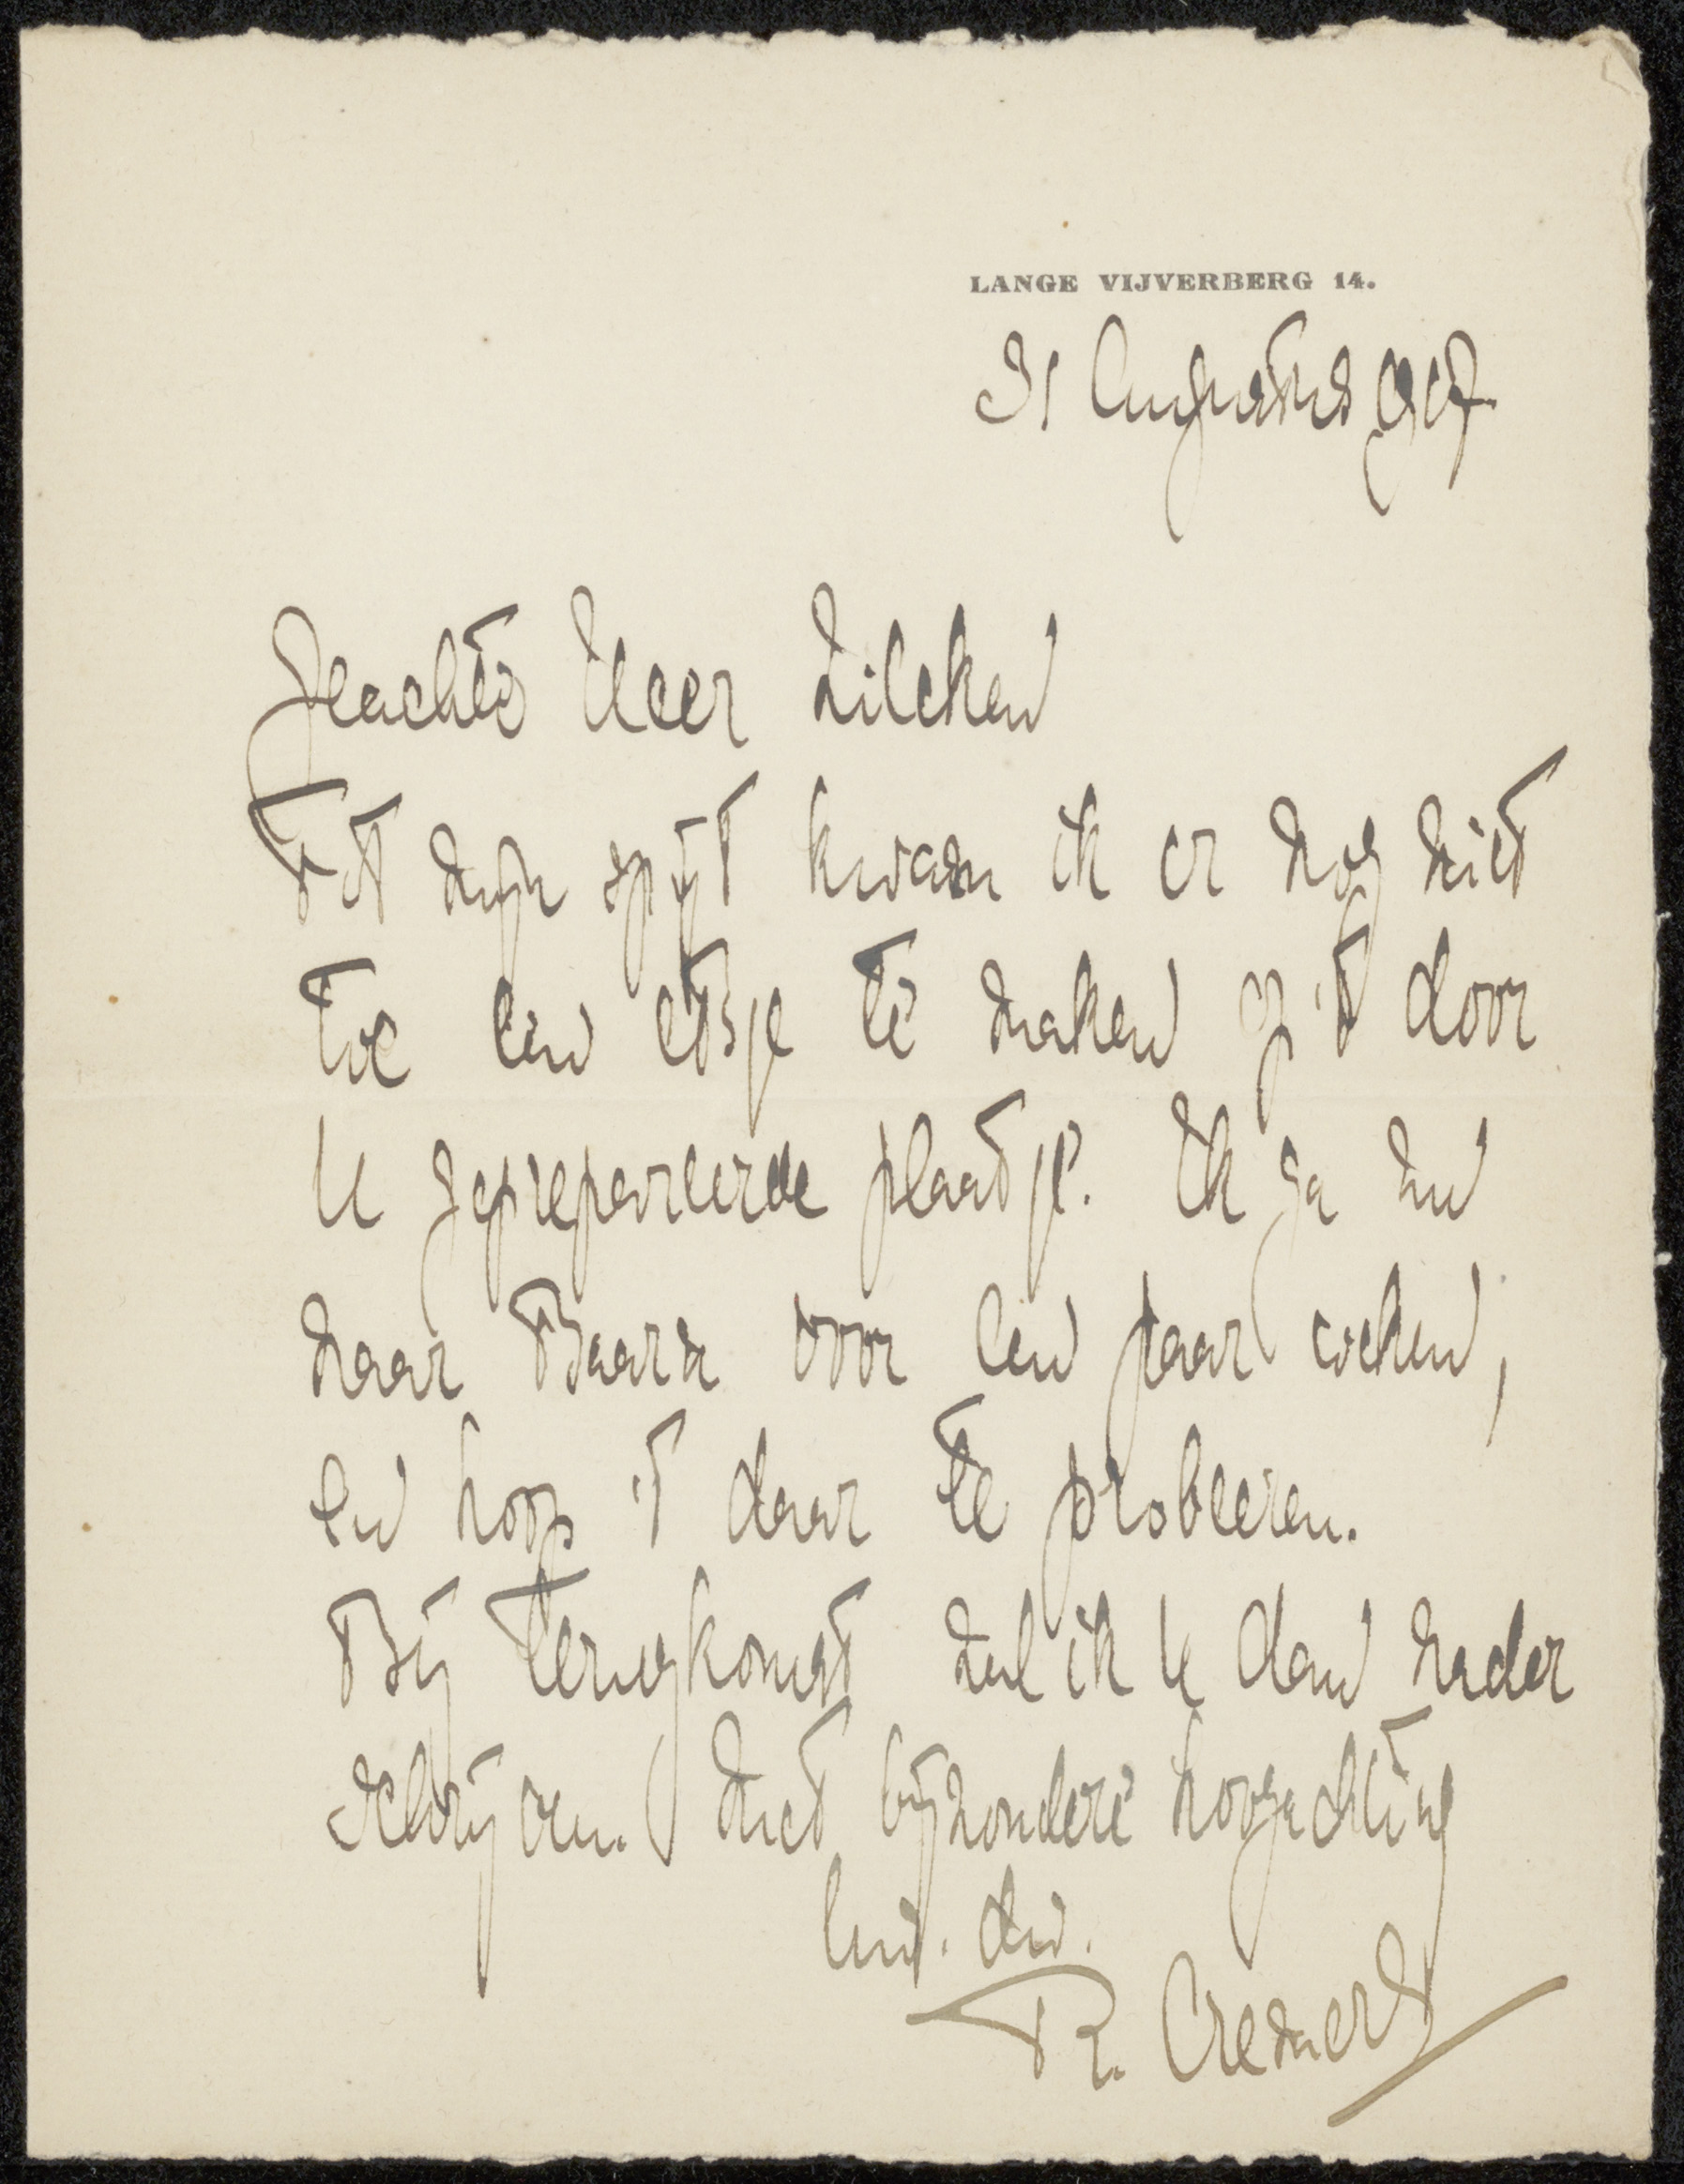 LANGE VIJVERBERG 14.
31 Augustus 1917
Geachte Heer Zilcken
Tot mijn spijt kwam ik er nog niet
toe een etsje te maken op 't door
U geprepareerde plaatje. Ik ga nu
naar Baarn voor een paar weken,
en hoop 't daar te probeeren.
Bij terugkomst zal ik U dan nader
schrijven. Met bijzondere hoogachting
Uw. dw.
R. Cremer